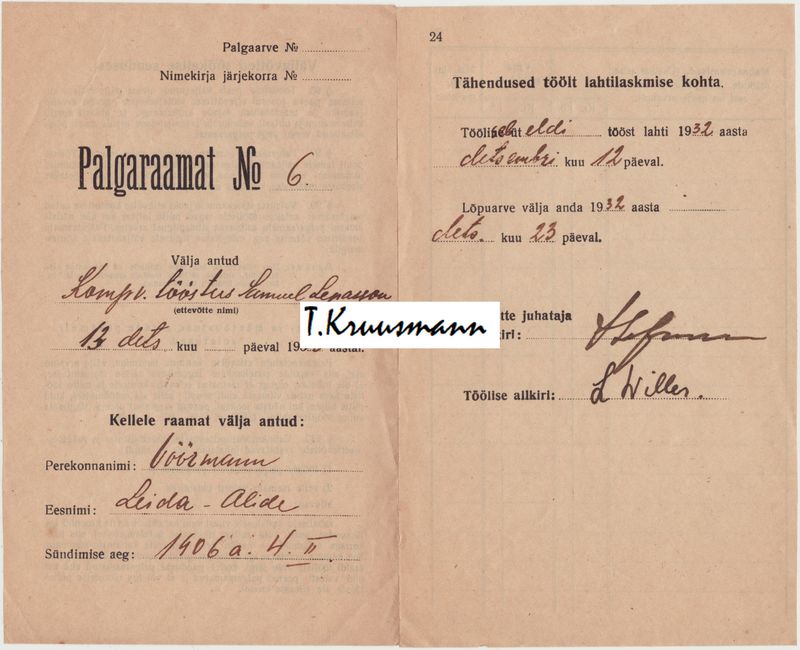 Palgaarve №
Nimekirja järjekorra №
Palgaraamat № 6.
Välja antud
Komp. tööstus Samuel Lepasson
(ettevõtte nimi)
13 dets kuu päeval 193 aastal.
Kellele raamat välja antud:
Perekonnanimi: Vöörmann
Eesnimi: Leida-Alide
Sündimise aeg: 1906 a. 4. II
T.Kruusmann
24
Tähendused töölt lahtilaskmise kohta.
öeldi tööst lahti 1932 aasta
detsembri kuu 12 päeval.
Lõpuarve välja anda 1932 aasta
dets. kuu 23 päeval.
tte juhataja
kiri:
Töölise allkiri: L Willer.